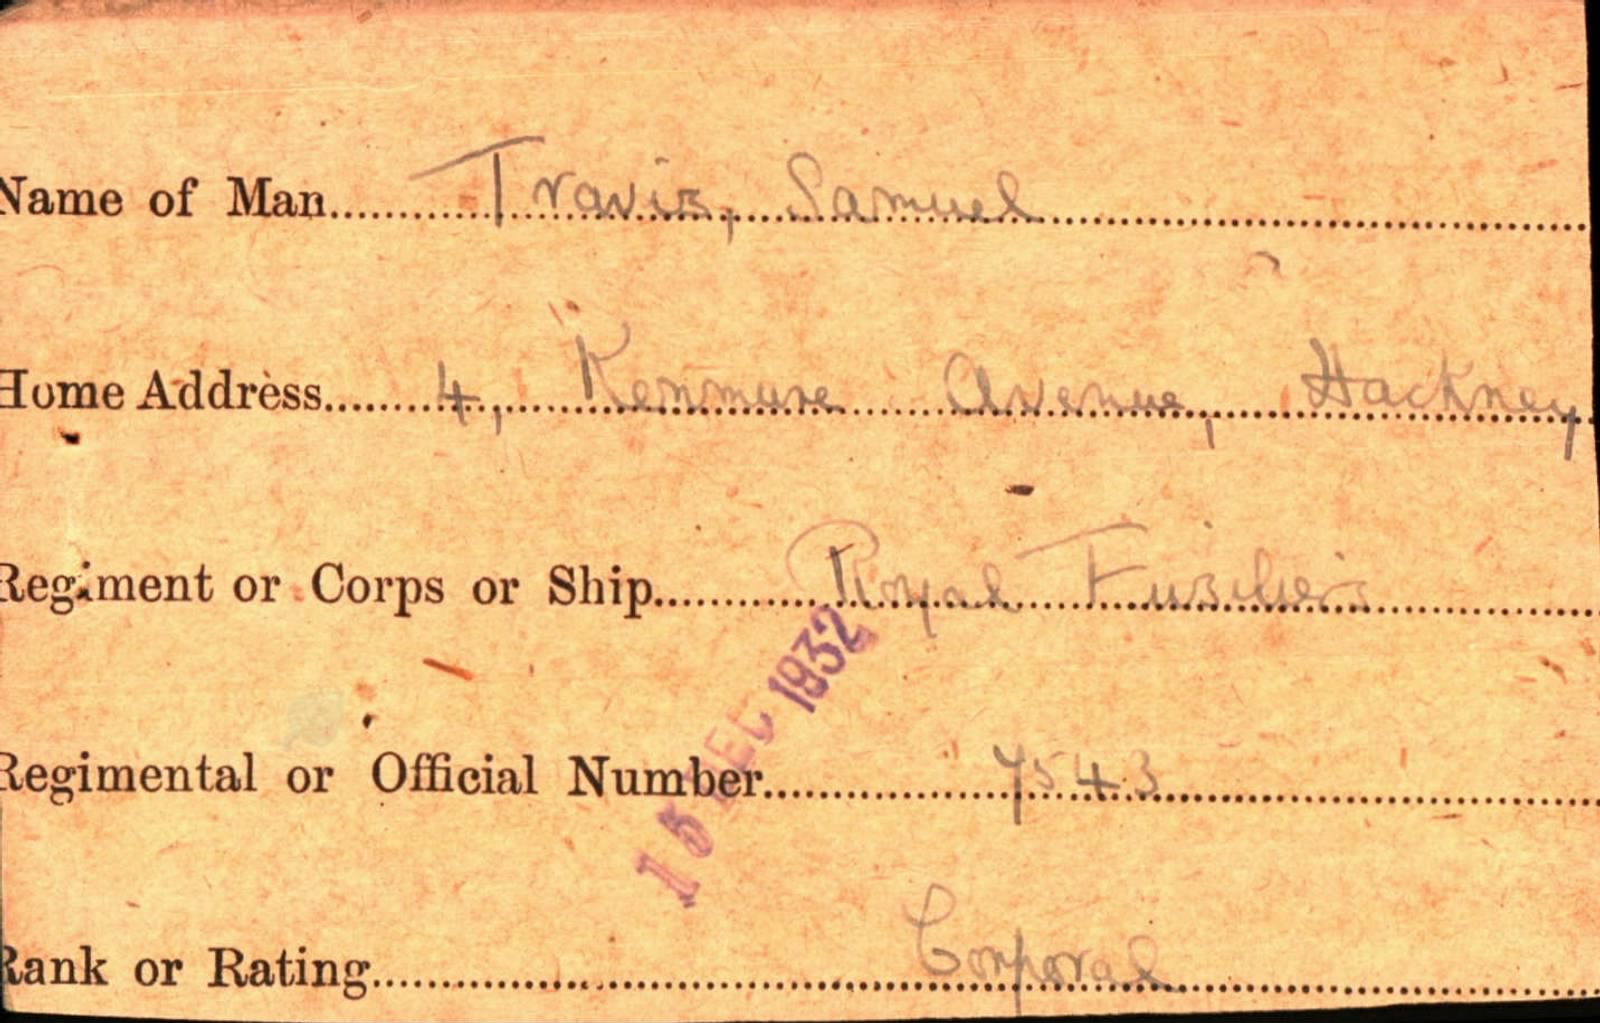 Name of Man.......... Travis, Samuel
Home Address.......... 4, Kenmure Avenue, Hackney
Regiment or Corps or Ship.......... Royal Fusiliers
15 DEC 1932
Regimental or Official Number.......... 7543
Rank or Rating.......... Corporal